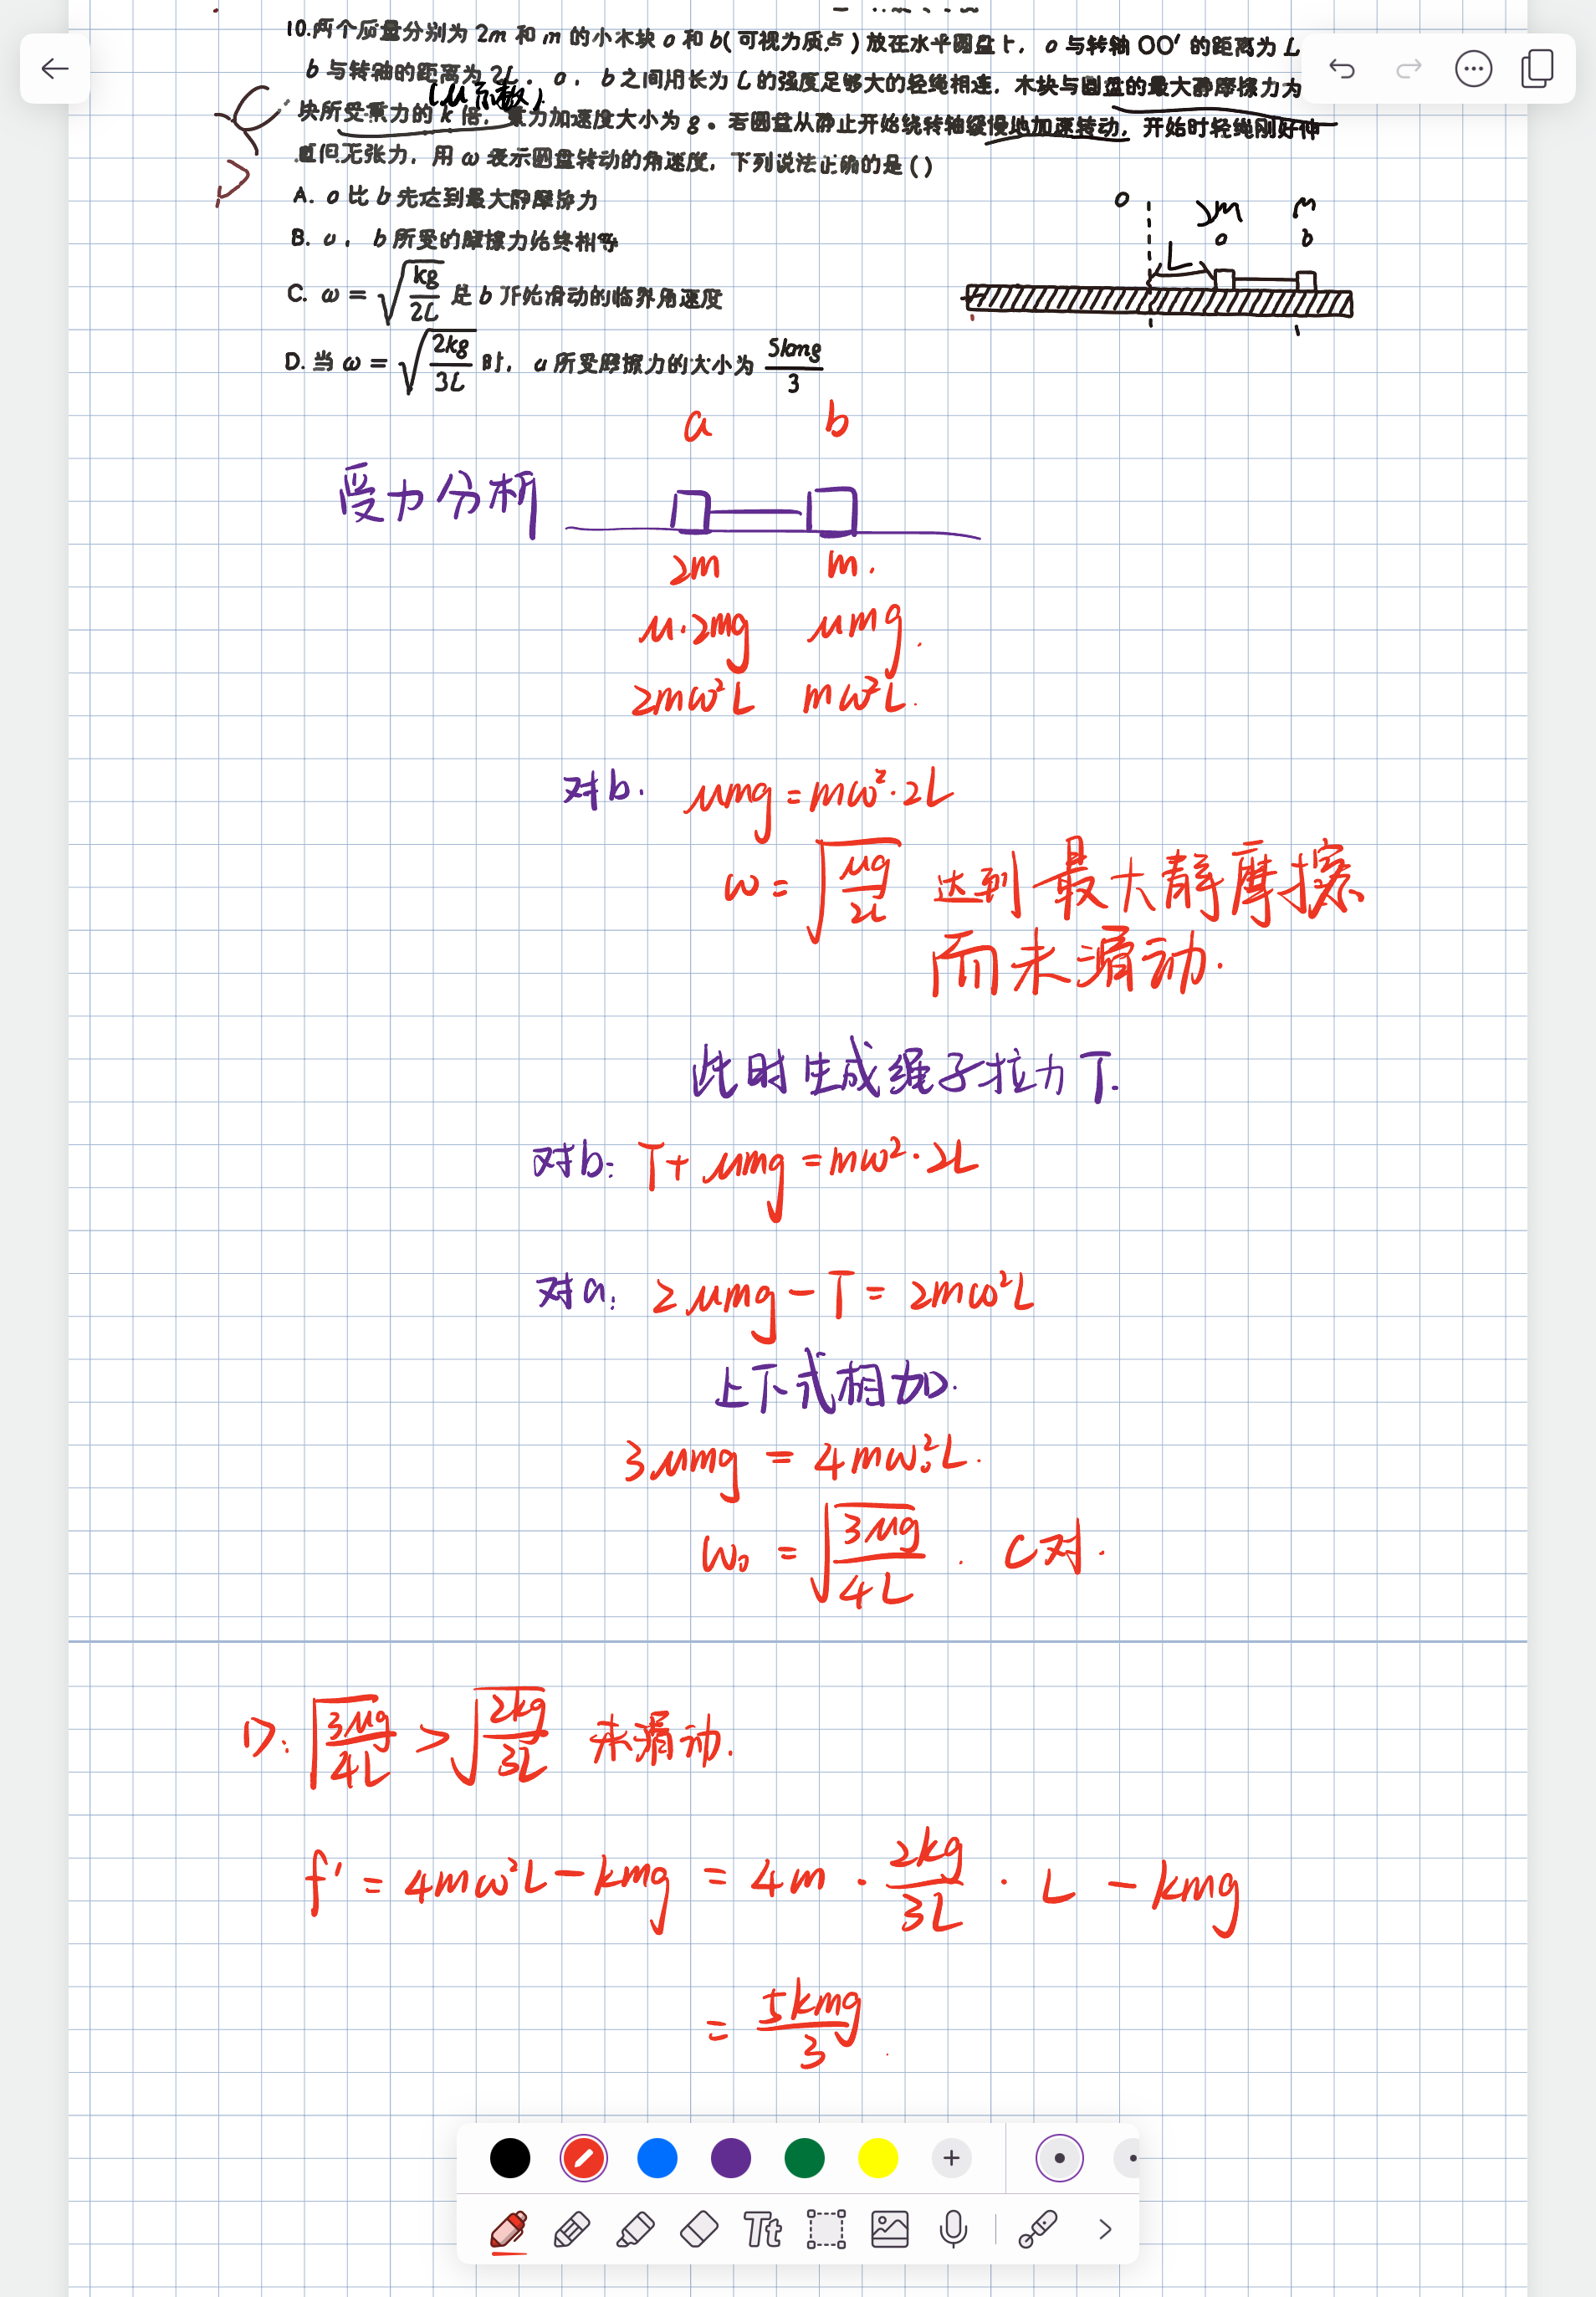 10.两个质量分别为 2m 和 m 的小木块 a 和 b(可视为质点)放在水平圆盘上, a 与转轴 OO′ 的距离为 L
b 与转轴的距离为 2L 。a , b 之间用长为 L 的强度足够大的轻绳相连, 木块与圆盘的最大静摩擦力为
(μ系数)
块所受重力的 k 倍, 重力加速度大小为 g 。若圆盘从静止开始绕转轴缓慢地加速转动, 开始时轻绳刚好伸
直但无张力, 用 ω 表示圆盘转动的角速度, 下列说法正确的是 ()
A. a 比 b 先达到最大静摩擦力
B. a , b 所受的摩擦力始终相等
C. ω = √(kg/2L) 是 b 开始滑动的临界角速度
D. 当 ω = √(2kg/3L) 时, a 所受摩擦力的大小为 5kmg/3
o 2m m
a b
L
a b
受力分析
2m m.
μ·2mg μmg.
2mω²L mω²L.
对b. μmg = mω²·2L
ω = √(μg/2L) 达到最大静摩擦
而未滑动.
此时生成绳子拉力 T.
对b: T+ μmg = mω²·2L
对a: 2μmg - T = 2mω²L
上下式相加.
3μmg = 4mω₀²L.
ω₀ = √(3μg/4L) . C对.
D. √(3μg/4L) > √(2kg/3L) 未滑动.
f' = 4mω²L - kmg = 4m · 2kg/3L · L - kmg
= 5kmg/3 .
Tt